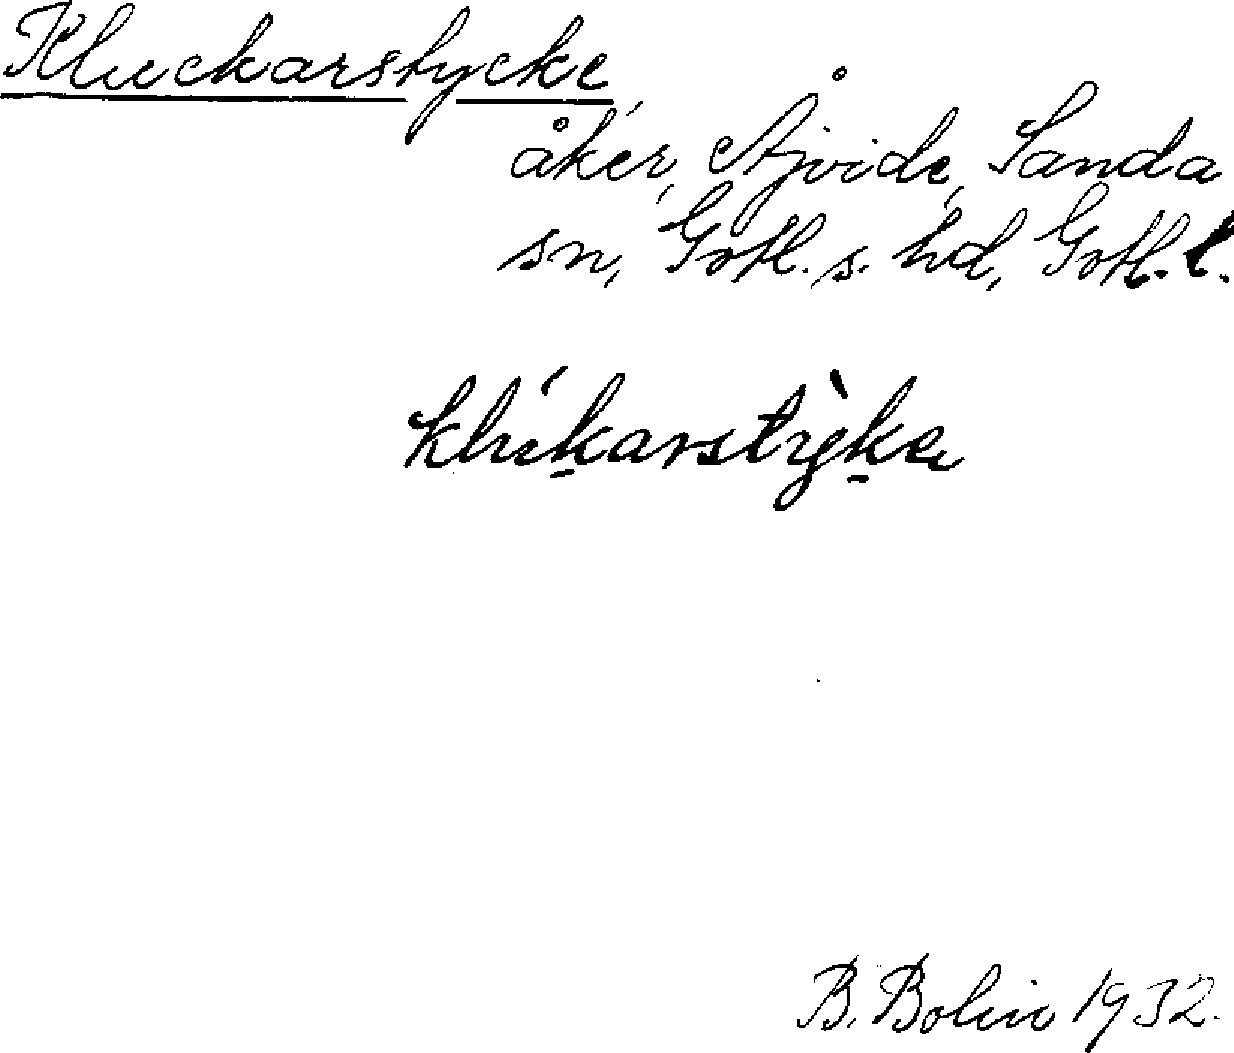 Kluckarstycke,
åker, Åjvide, Sanda
sn, Gotl. s. hd, Gotl. l.
klúk̠arstỳk̠e
B. Bolin 1932.